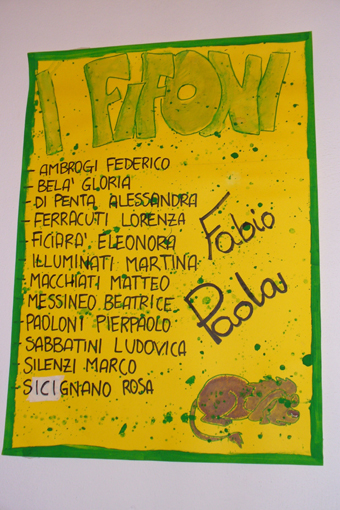 I FIFONI
- AMBROGI FEDERICO
- BELA' GLORIA
- DI PENTA ALESSANDRA
- FERRACUTI LORENZA
- FICIARA' ELEONORA
- ILLUMINATI MARTINA
- MACCHIATI MATTEO
- MESSINEO BEATRICE
- PAOLONI PIERPAOLO
- SABBATINI LUDOVICA
- SILENZI MARCO
- SICIGNANO ROSA
Fabio
Paola